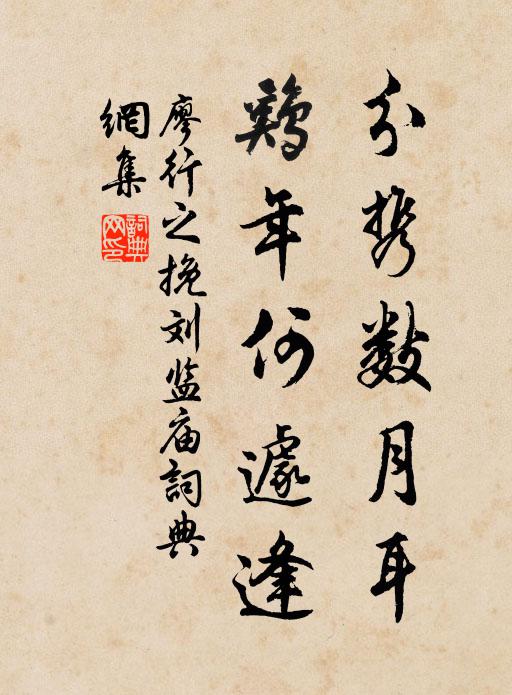 分携数月耳
鸡年何遽逢
廖行之挽刘监庙詞典
網集
詞典網印